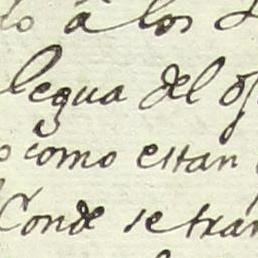 do â los
legua del
como estan
Conde se tran